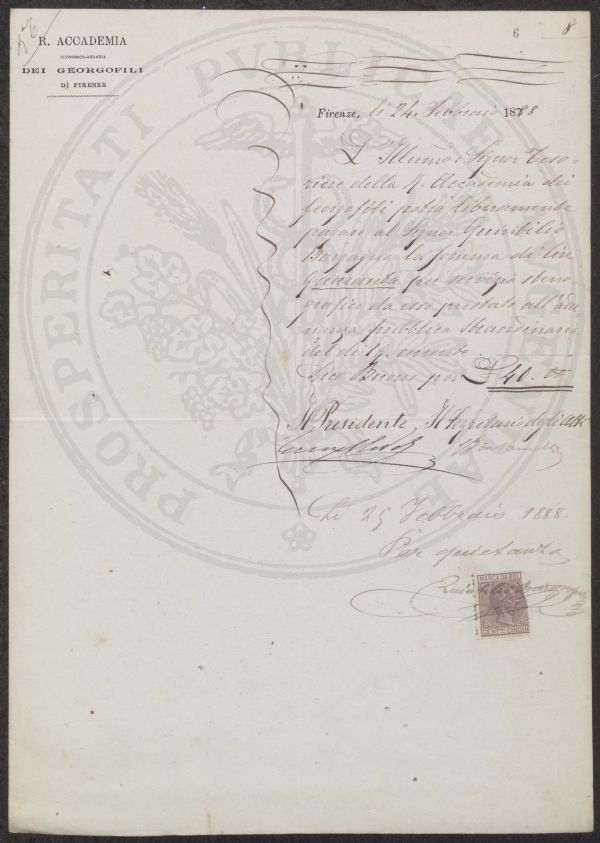 6
8
N. 6
R. ACCADEMIA
ECONOMICO-AGRARIA
DEI GEORGOFILI
DI FIRENZE
Firenze, li 24 Febbraio 1888
L'Illumo: Signor Teso-
riere della R. Accademia dei
Georgofili potrà liberamente
pagare al Signor Quintilio
Bargagna la somma di lire
Quaranta per servizio steno-
grafico da esso prestato all'adu-
nanza pubblica straordinaria
del dì 19. corrente.
Dico Buono per £ 40. -
Il Presidente, Il Segretario degli Atti
Lì 25 Febbraio 1888.
Per quietanza
MARCA DA BOLLO
CENT.MI CINQUE
PROSPERITATI PVBLICAE